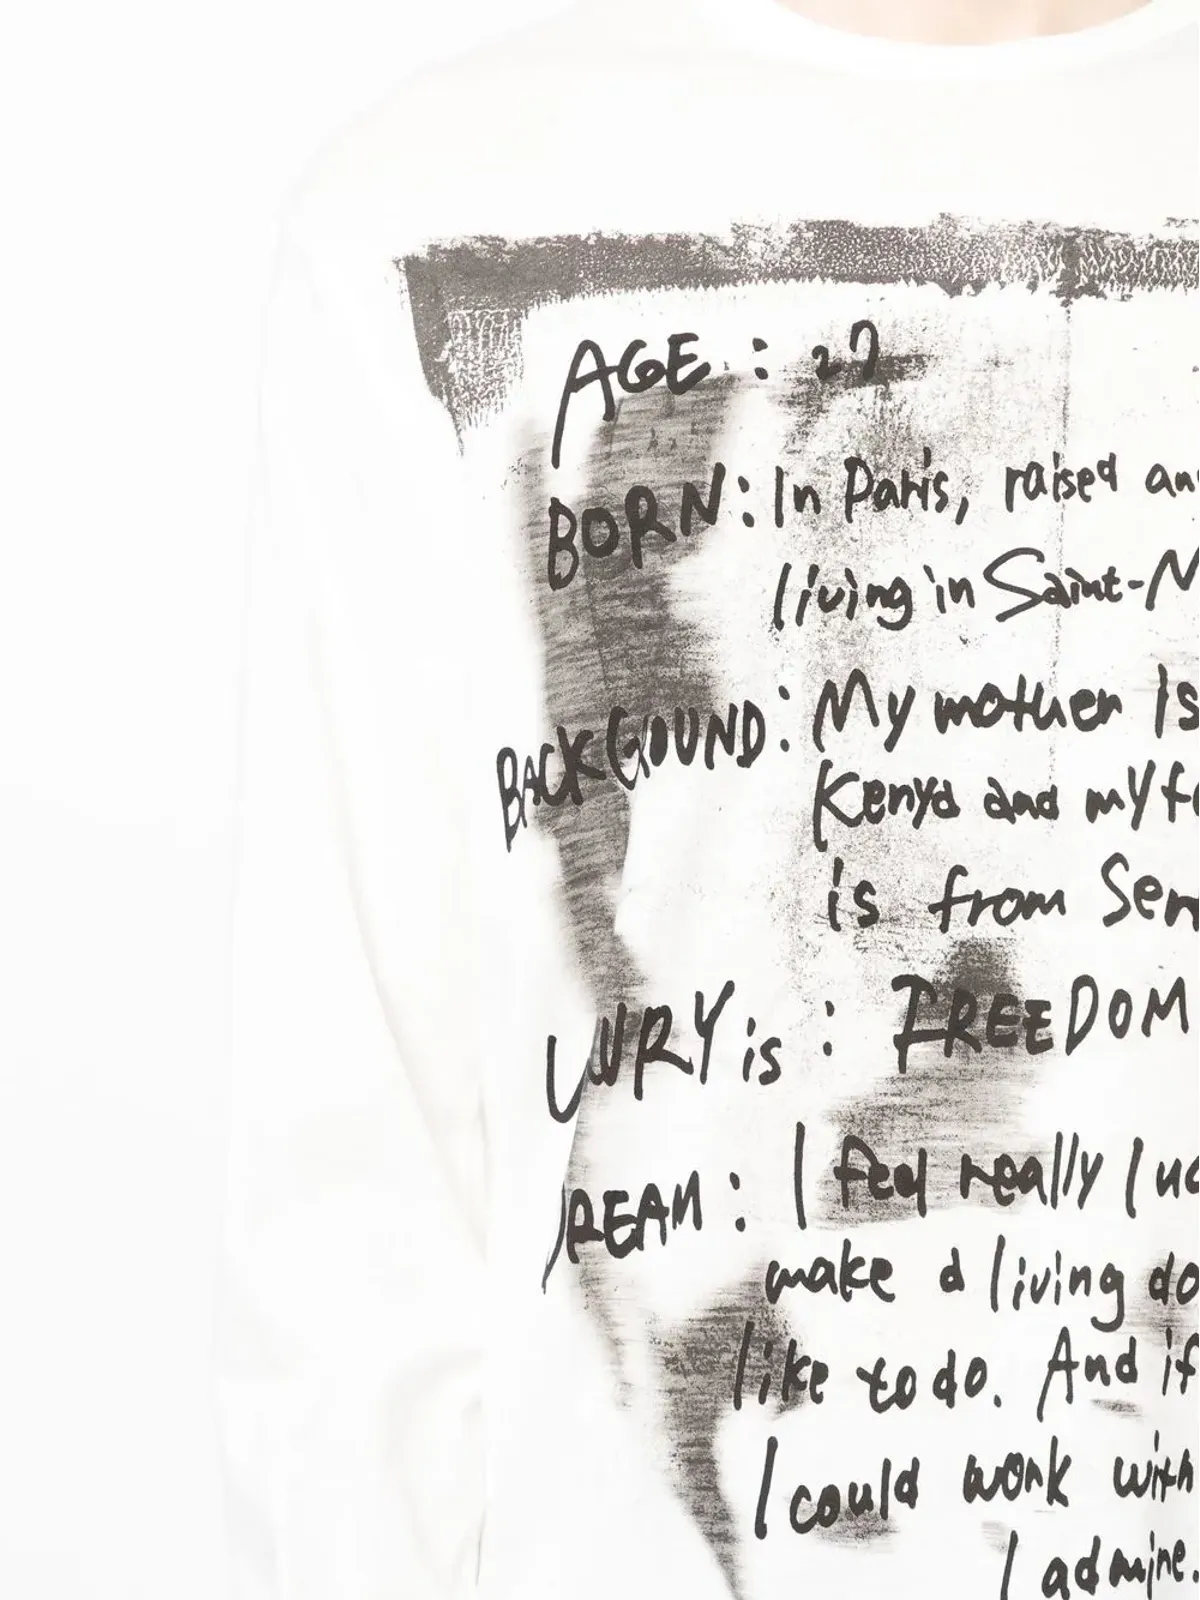 AGE : 27
BORN : In Paris, raised an
living in Saint-N
BACKGOUND : My mother Is
Kenya and my f
is from Sen
is : FREEDOM
REAM : I feel really lu
make a living do
like to do. And if
I could work with
I admire.